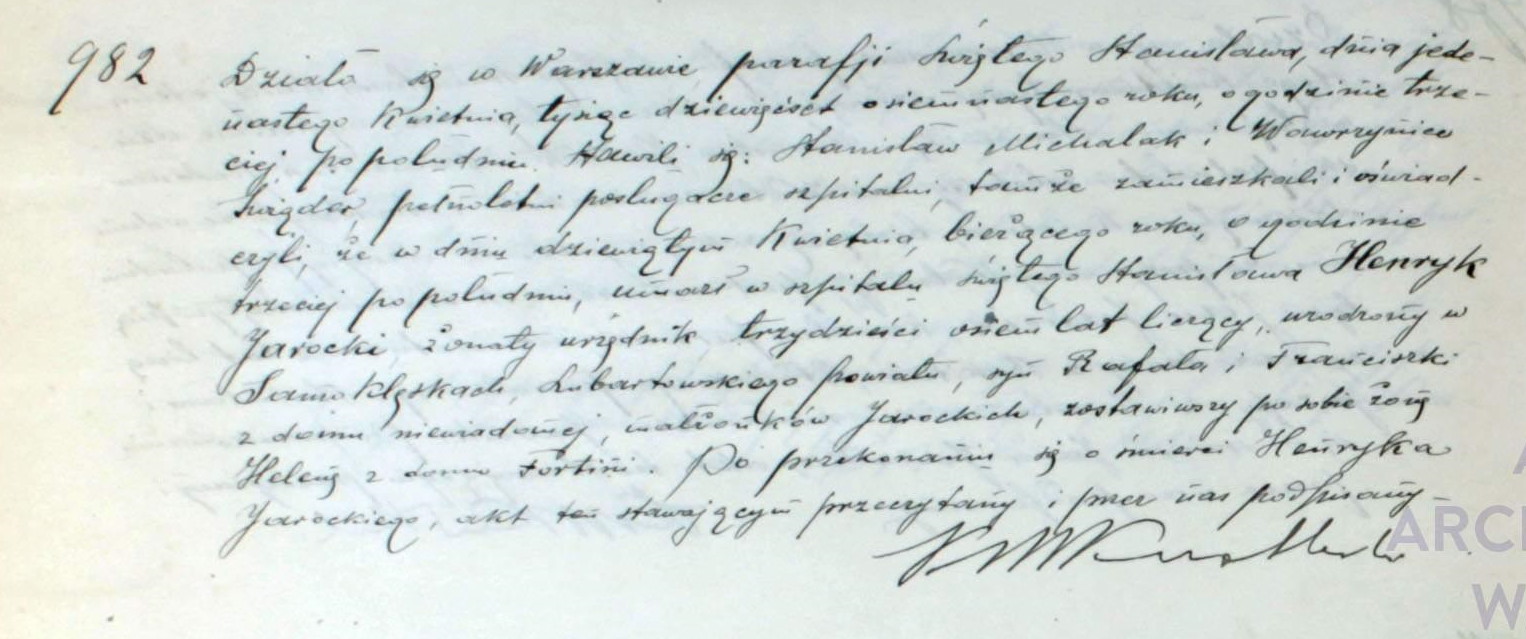 982
Działo się w Warszawie parafji świętego Stanisława, dnia jede-
nastego Kwietnia, tysiąc dziewięćset osiemnastego roku, o godzinie trze-
ciej po południu. Stawili się: Stanisław Michalak i Wawrzyniec
Świąder, pełnoletni posługacze szpitalni, tamże zamieszkali i oświad-
czyli, że w dniu dziewiątym Kwietnia, bieżącego roku, o godzinie
trzeciej po południu, umarł w szpitalu świętego Stanisława Henryk
Jarocki, żonaty urzędnik trzydzieści osiem lat liczący, urodzony w
Samoklęskach, Lubartowskiego powiatu, syn Rafała i Franciszki
z domu niewiadomej, małżonków Jarockich, zostawiwszy po sobie żonę
Helenę z domu Fortini. Po przekonaniu się o śmierci Henryka
Jarockiego, akt ten stawającym przeczytany i przez nas podpisany
ARCH
W